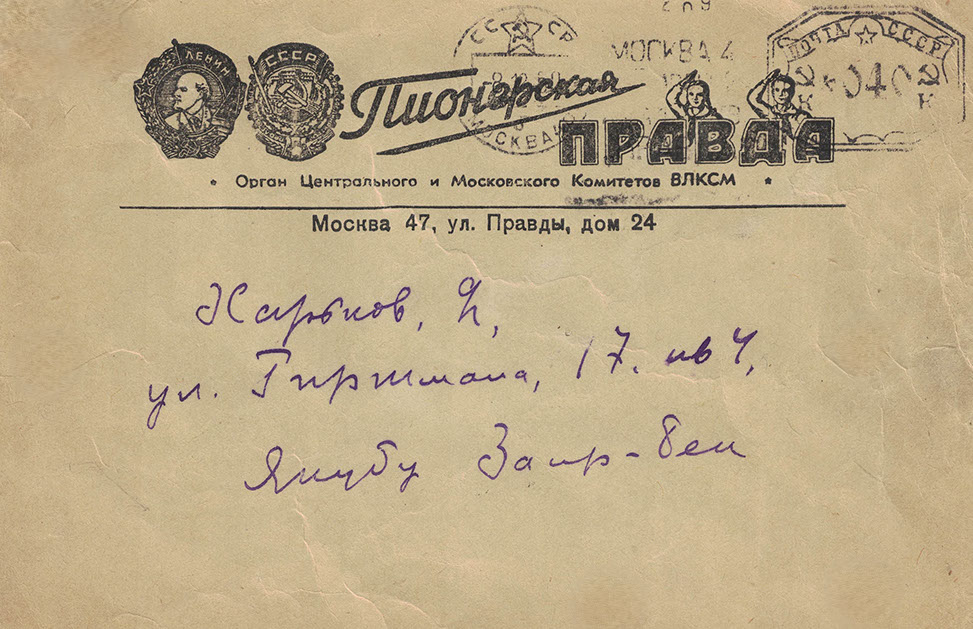 ЛЕНИН
СССР
СССР
МОСКВА 4
ПОЧТА СССР
040
К К
МОСКВА
Пионерская
ПРАВДА
* Орган Центрального и Московского Комитетов ВЛКСМ *
Москва 47, ул. Правды, дом 24
Харьков,
ул. Гиршмана, 17. кв 4,
Якубу Заир-бек